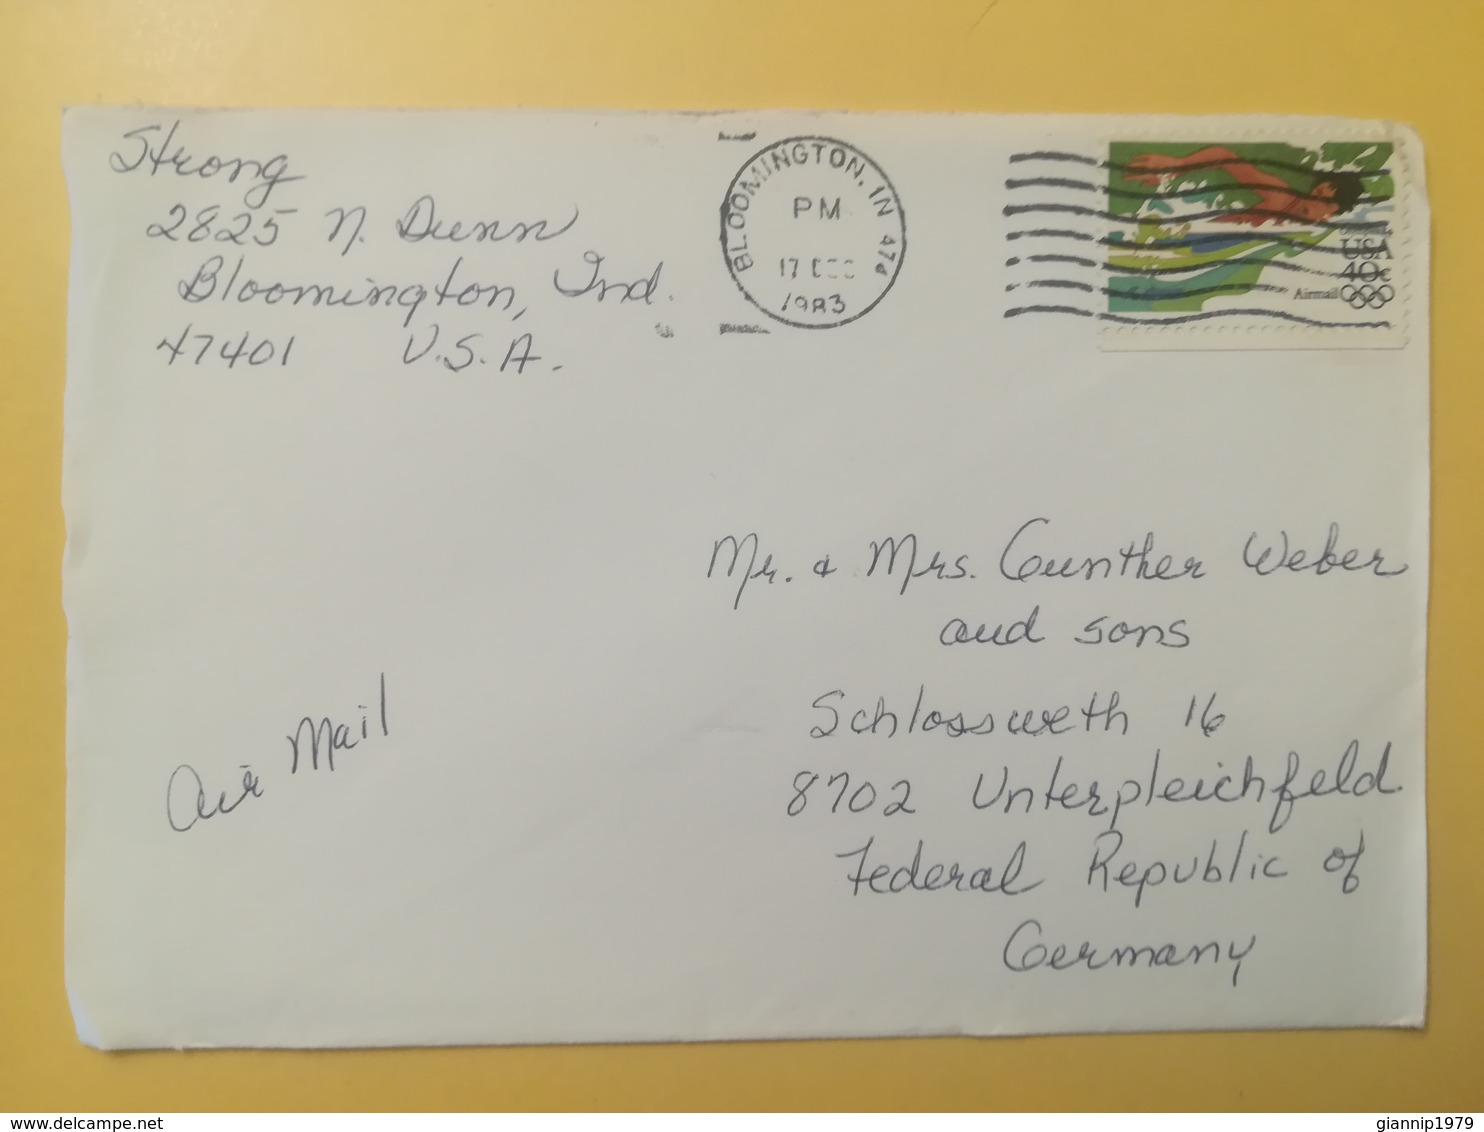 Strong
2825 N. Dunn
Bloomington, Ind.
47401 U.S.A.
BLOOMINGTON, IN 474
PM
17 DEC
1983
USA
40c
Airmail
Mr. & Mrs. Gunther Weber
and sons
Schlossweth 16
8702 Unterpleichfeld
Federal Republic of
Germany
Air Mail
www.delcampe.net
giannip1979